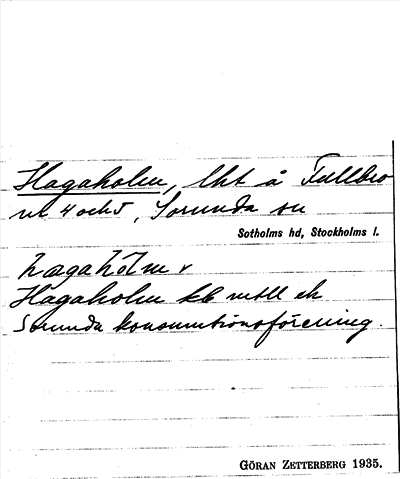 Hagaholm, lht å Fullbro
nr 4 och 5, Sorunda sn
Sotholms hd, Stockholms l.
hagahölm v
Hagaholm
Sorunda konsumtionsförening.
GÖRAN ZETTERBERG 1935.